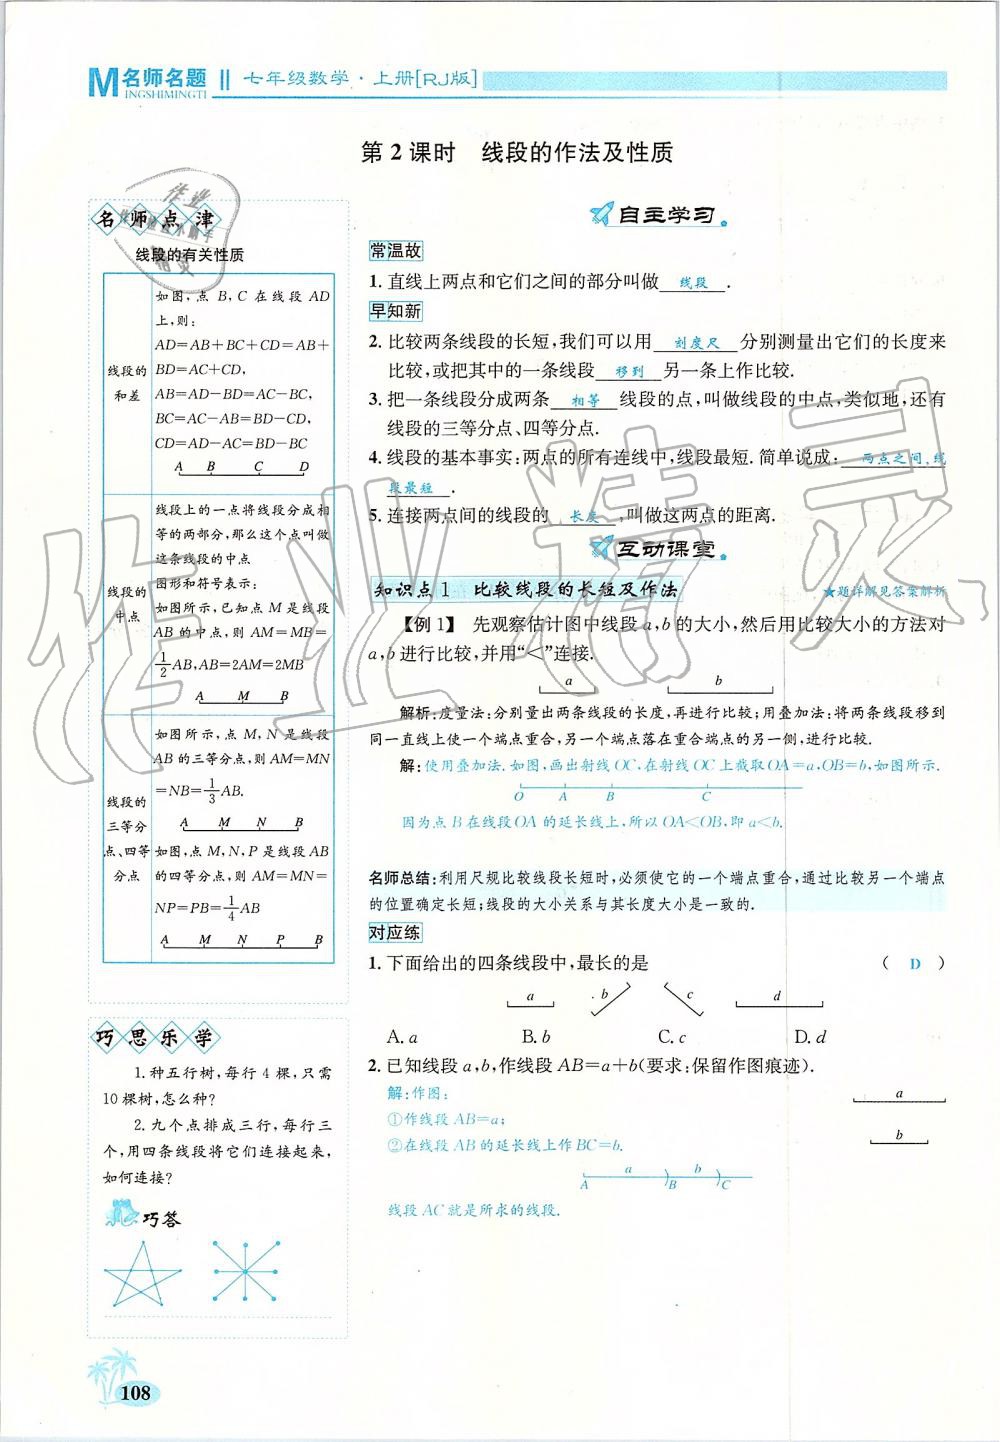 M名师名题 || 七年级数学·上册[RJ版]
INGSHIMINGTI
第2课时 线段的作法及性质
名师点津
线段的有关性质
线段的
和差
如图,点 B,C 在线段 AD
上,则:
AD=AB+BC+CD=AB+
BD=AC+CD,
AB=AD-BD=AC-BC,
BC=AC-AB=BD-CD,
CD=AD-AC=BD-BC
A B C D
线段的
中点
线段上的一点将线段分成相
等的两部分,那么这个点叫做
这条线段的中点
图形和符号表示:
如图所示,已知点 M 是线段
AB 的中点,则 AM=MB=
1/2AB,AB=2AM=2MB
A M B
线段的
三等分
点、四等
分点
如图所示,点 M,N 是线段
AB 的三等分点,则 AM=MN
=NB=1/3AB.
A M N B
如图,点 M,N,P 是线段 AB
的四等分点,则 AM=MN=
NP=PB=1/4AB
A M N P B
巧思乐学
1.种五行树,每行 4 棵,只需
10棵树,怎么种?
2.九个点排成三行,每行三
个,用四条线段将它们连接起来,
如何连接?
巧答
108
自主学习
常温故
1.直线上两点和它们之间的部分叫做 线段 .
早知新
2.比较两条线段的长短,我们可以用 刻度尺 分别测量出它们的长度来
比较,或把其中的一条线段 移到 另一条上作比较.
3.把一条线段分成两条 相等 线段的点,叫做线段的中点,类似地,还有
线段的三等分点、四等分点.
4.线段的基本事实:两点的所有连线中,线段最短.简单说成: 两点之间,线
段最短 .
5.连接两点间的线段的 长度 ,叫做这两点的距离.
互动课堂
知识点1 比较线段的长短及作法 ★题详解见答案解析
【例1】 先观察估计图中线段 a,b 的大小,然后用比较大小的方法对
a,b 进行比较,并用“<”连接.
a b
解析:度量法:分别量出两条线段的长度,再进行比较;用叠加法:将两条线段移到
同一直线上使一个端点重合,另一个端点落在重合端点的另一侧,进行比较.
解:使用叠加法.如图,画出射线OC,在射线OC上截取OA=a,OB=b,如图所示.
O A B C
因为点 B 在线段 OA 的延长线上,所以 OA<OB,即 a<b.
名师总结:利用尺规比较线段长短时,必须使它的一个端点重合,通过比较另一个端点
的位置确定长短;线段的大小关系与其长度大小是一致的.
对应练
1.下面给出的四条线段中,最长的是 ( D )
a b c d
A. a B. b C. c D. d
2.已知线段 a,b,作线段 AB=a+b(要求:保留作图痕迹).
解:作图:
①作线段 AB=a;
②在线段 AB 的延长线上作 BC=b.
a
b
a b
A B C
线段 AC 就是所求的线段.
作业精灵